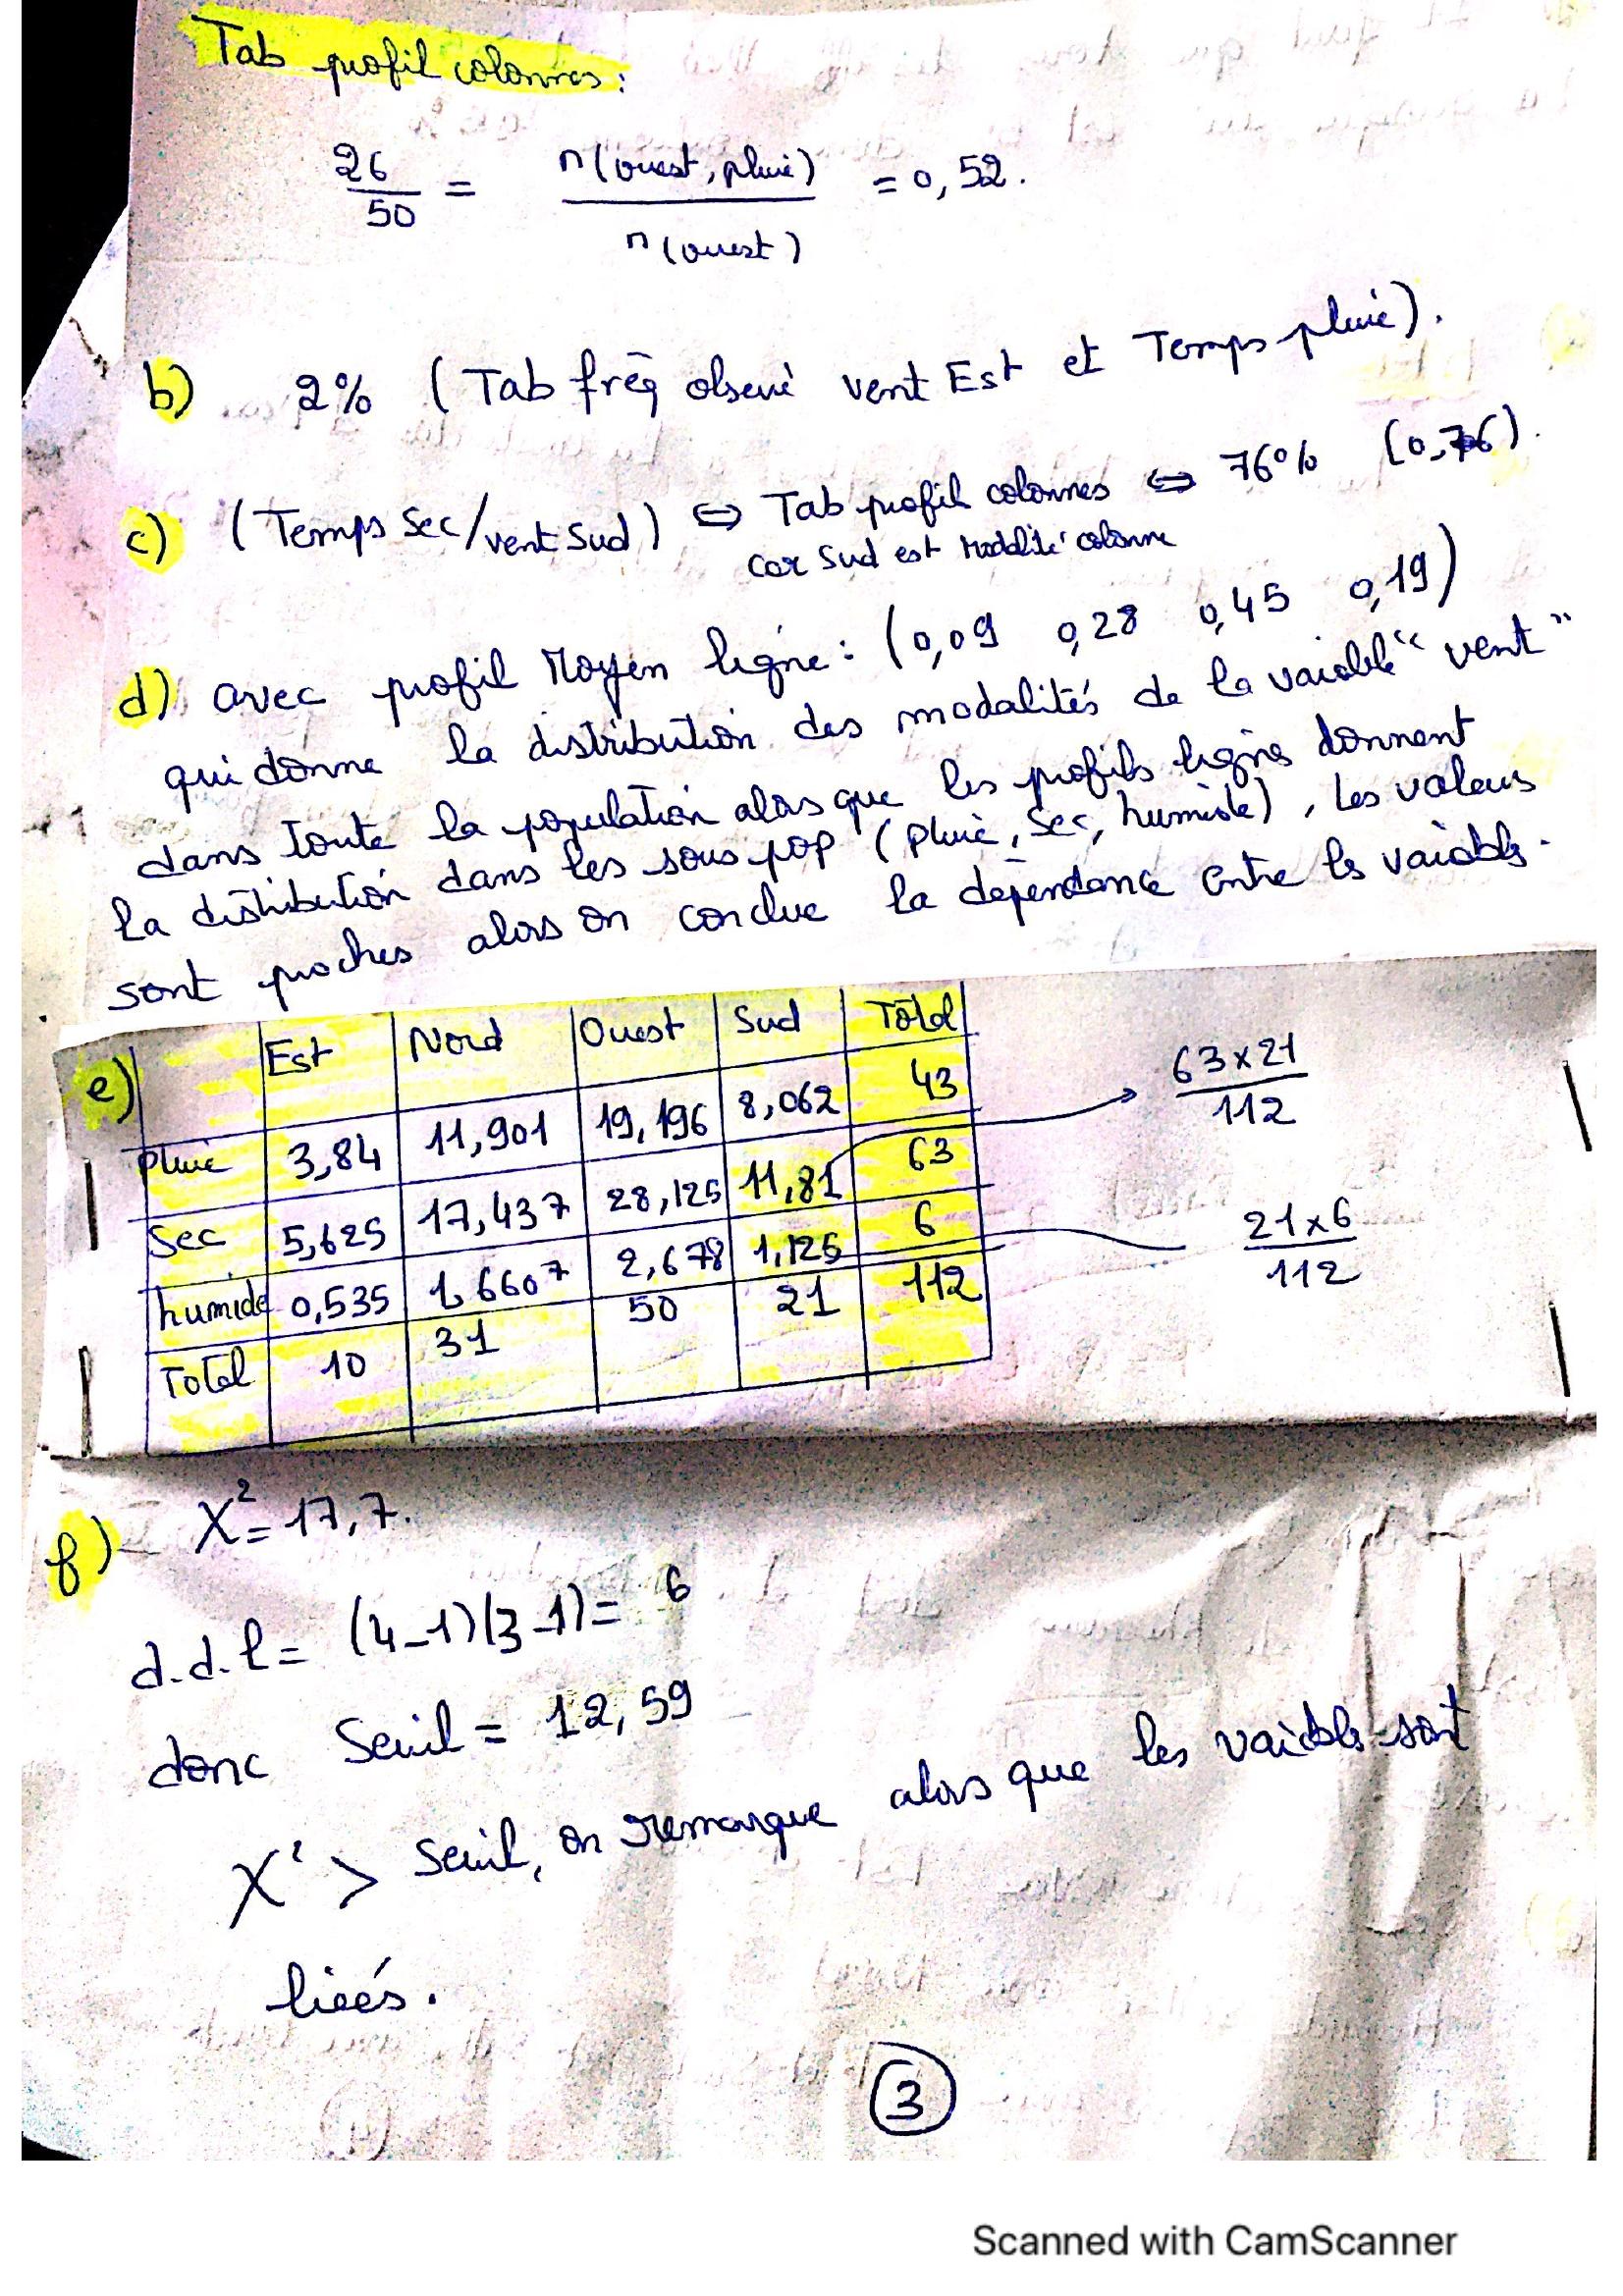 Tab profil colonnes:
26/50 = n(ouest, pluie)/n(ouest) = 0,52.
b) 2% (Tab freq observé vent Est et Temps pluie).
c) (Temps Sec/vent Sud) ⇔ Tab profil colonnes ⇔ 76% (0,76).
car Sud est Modalité colonne
d) avec profil Moyen ligne: (0,09 0,28 0,45 0,19)
qui donne la distribution des modalités de la variable "vent"
dans toute la population alors que les profils ligne donnent
la distribution dans les sous pop (pluie, Sec, humide), les valeurs
sont proches alors on conclue la dépendance entre les variables.
e) Est Nord Ouest Sud Total
pluie 3,84 11,901 19,196 8,062 43
Sec 5,625 17,437 28,125 11,81 63 → 63x21/112
humide 0,535 1,6607 2,678 1,125 6 21x6/112
Total 10 31 50 21 112
f) X²= 17,7.
d.d.l = (4-1)(3-1)= 6
donc Seuil = 12,59
X² > Seuil, on remarque alors que les variables sont
lieés.
3
Scanned with CamScanner